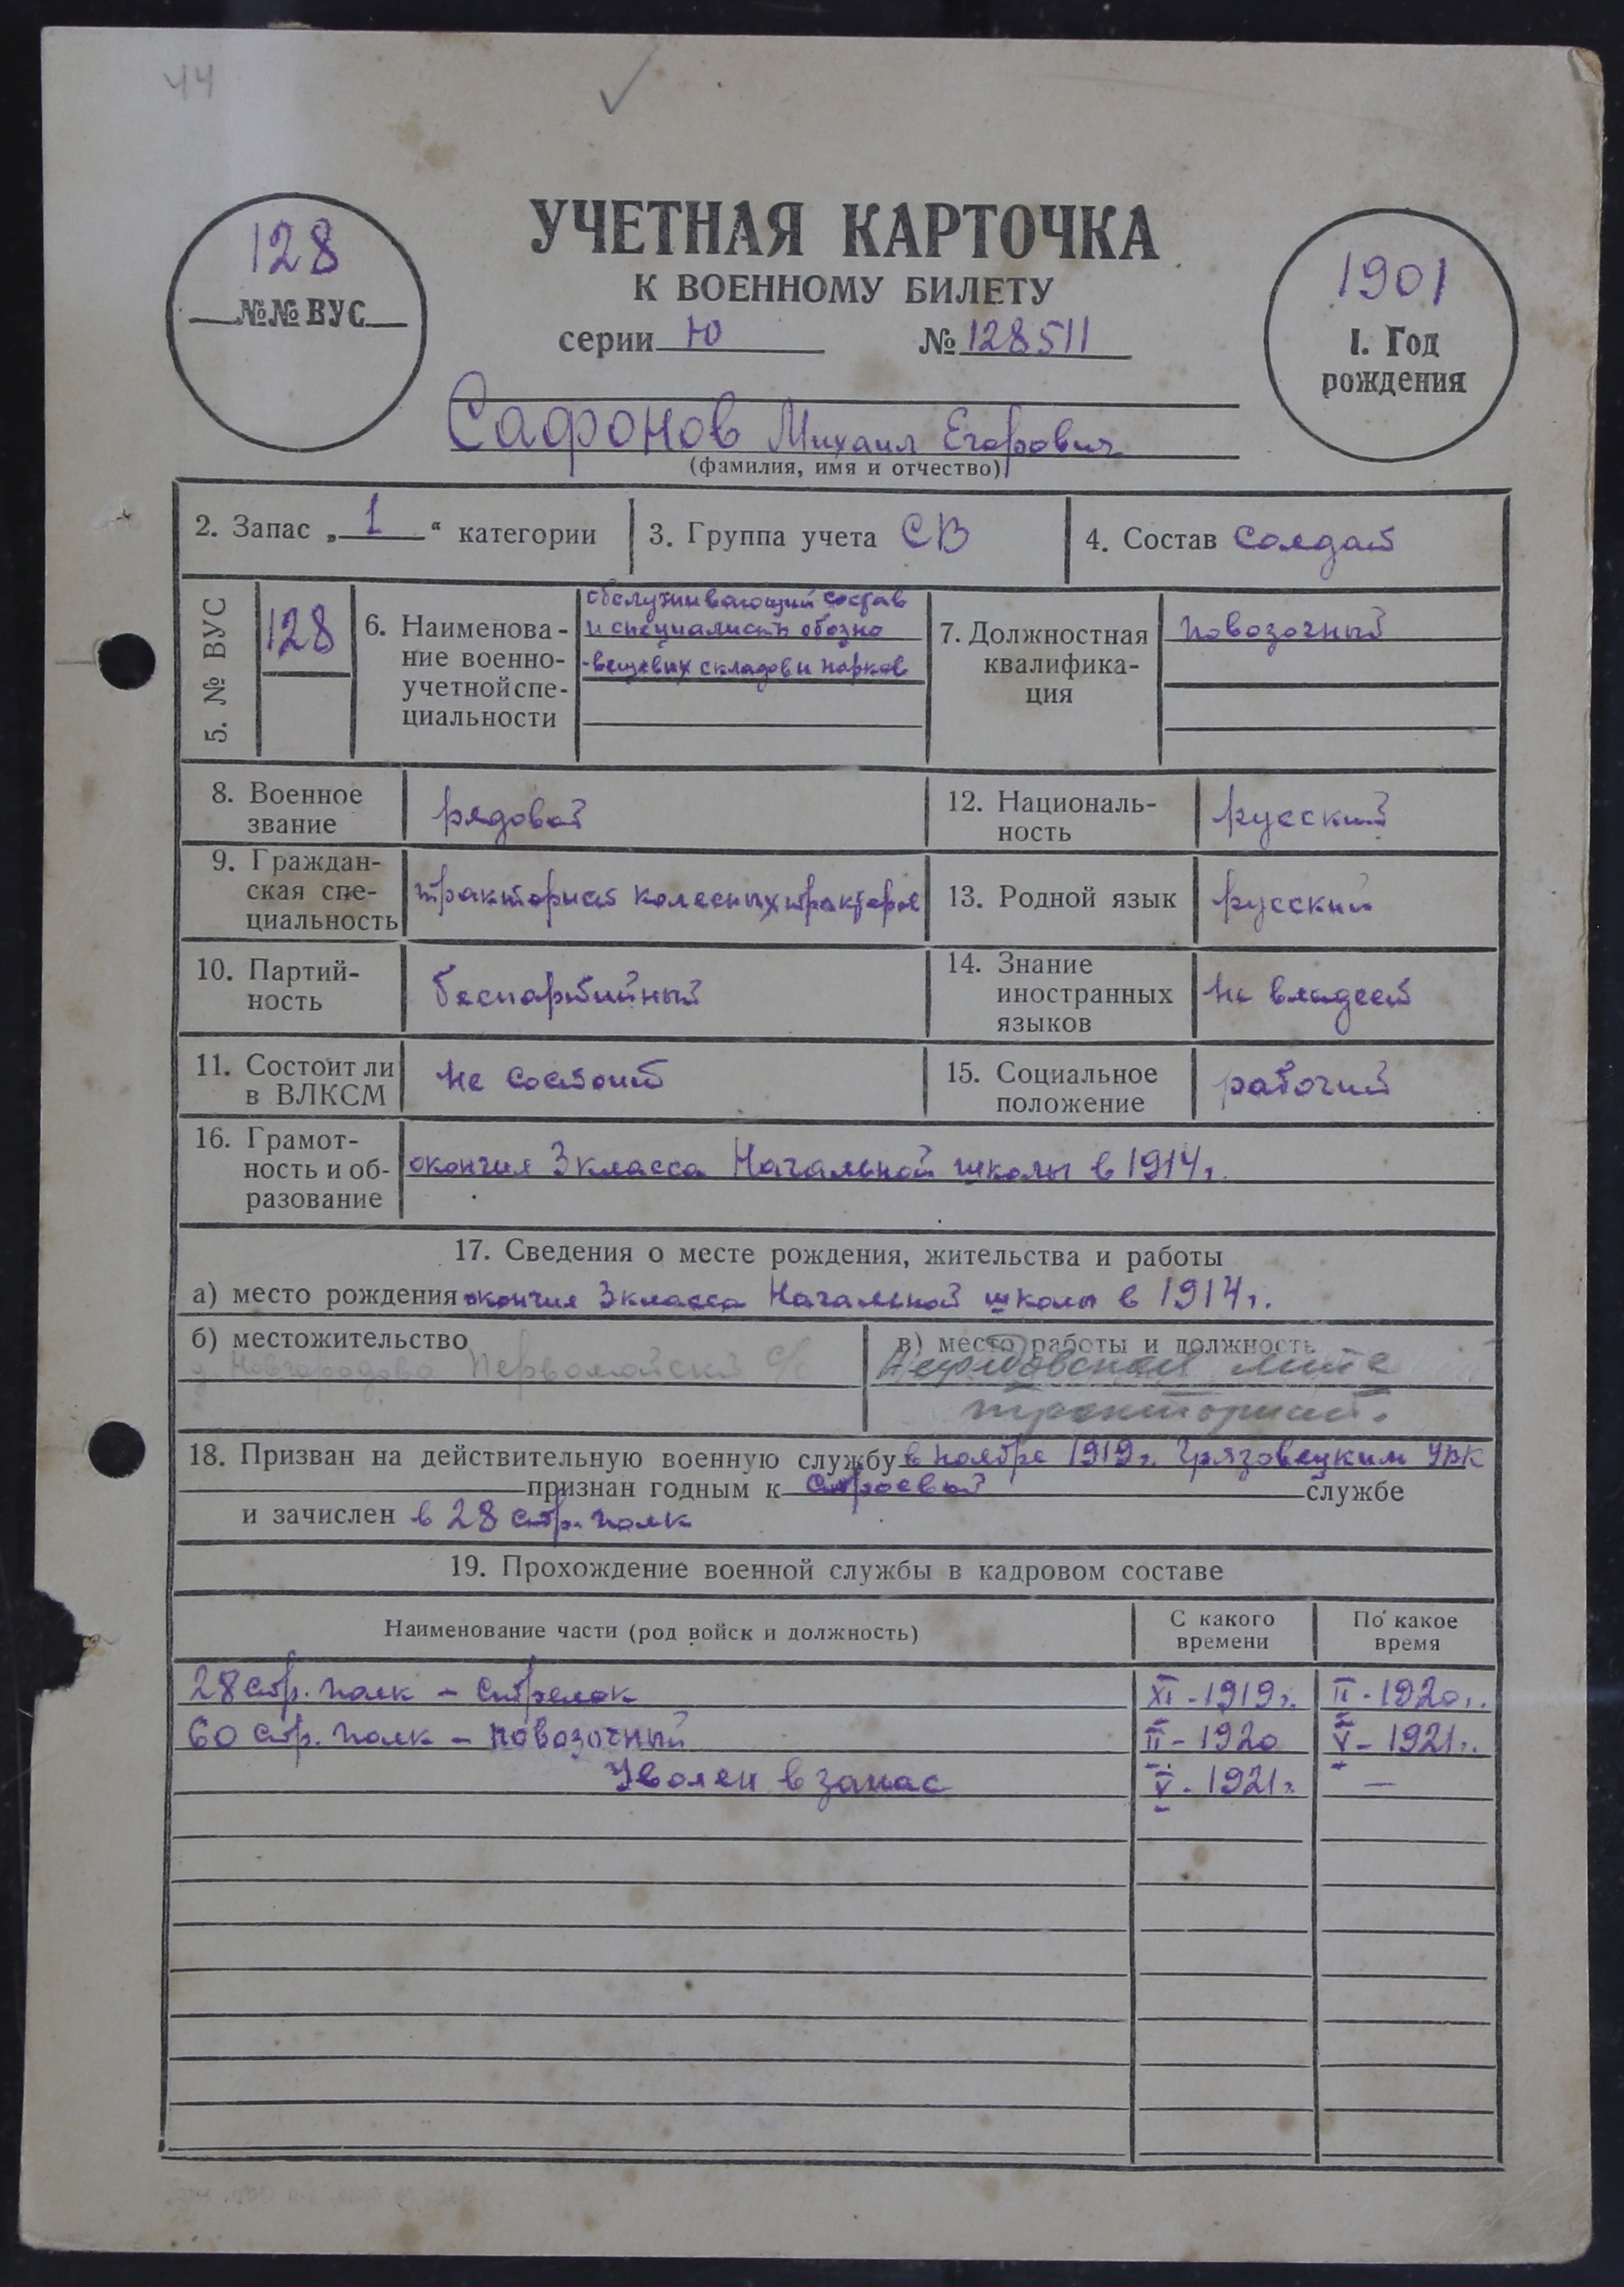 44
УЧЕТНАЯ КАРТОЧКА
К ВОЕННОМУ БИЛЕТУ
серии Ю № 128511
128
№№ ВУС
1901
1. Год
рождения
Сафонов Михаил Егорович
(фамилия, имя и отчество)
2. Запас „ 1 “ категории
3. Группа учета СВ
4. Состав Солдат
5. № ВУС
128
6. Наименова-
ние военно-
учетной спе-
циальности
обслуживающий состав
и специалисты обозно
-вещевых складов и парков
7. Должностная
квалифика-
ция
повозочный
8. Военное
звание
рядовой
12. Националь-
ность
русский
9. Граждан-
ская спе-
циальность
тракторист колесных тракторов
13. Родной язык
русский
10. Партий-
ность
беспартийный
14. Знание
иностранных
языков
не владеет
11. Состоит ли
в ВЛКСМ
не состоит
15. Социальное
положение
рабочий
16. Грамот-
ность и об-
разование
окончил 3 класса Начальной школы в 1914г.
17. Сведения о месте рождения, жительства и работы
а) место рождения окончил 3 класса Начальной школы в 1914г.
б) местожительство
д Новгородово Первомайский с/с
в) место работы и должность
тракторист.
18. Призван на действительную военную службу в ноябре 1919г. Грязовецким УВК
признан годным к строевой службе
и зачислен в 28 стр. полк
19. Прохождение военной службы в кадровом составе
Наименование части (род войск и должность)
С какого
времени
По какое
время
28 стр. полк – стрелок XI - 1919г. II - 1920г.
60 стр. полк – повозочный II - 1920 V - 1921г.
Уволен в запас V - 1921г. —